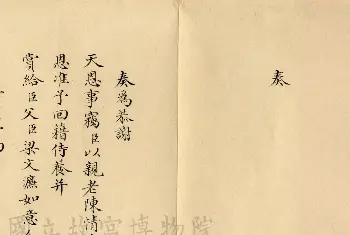 奏
奏為恭謝
天恩事竊臣以親老陳情
恩准予回籍侍養并
賞給臣父臣梁文濂如意
國立故宮博物院